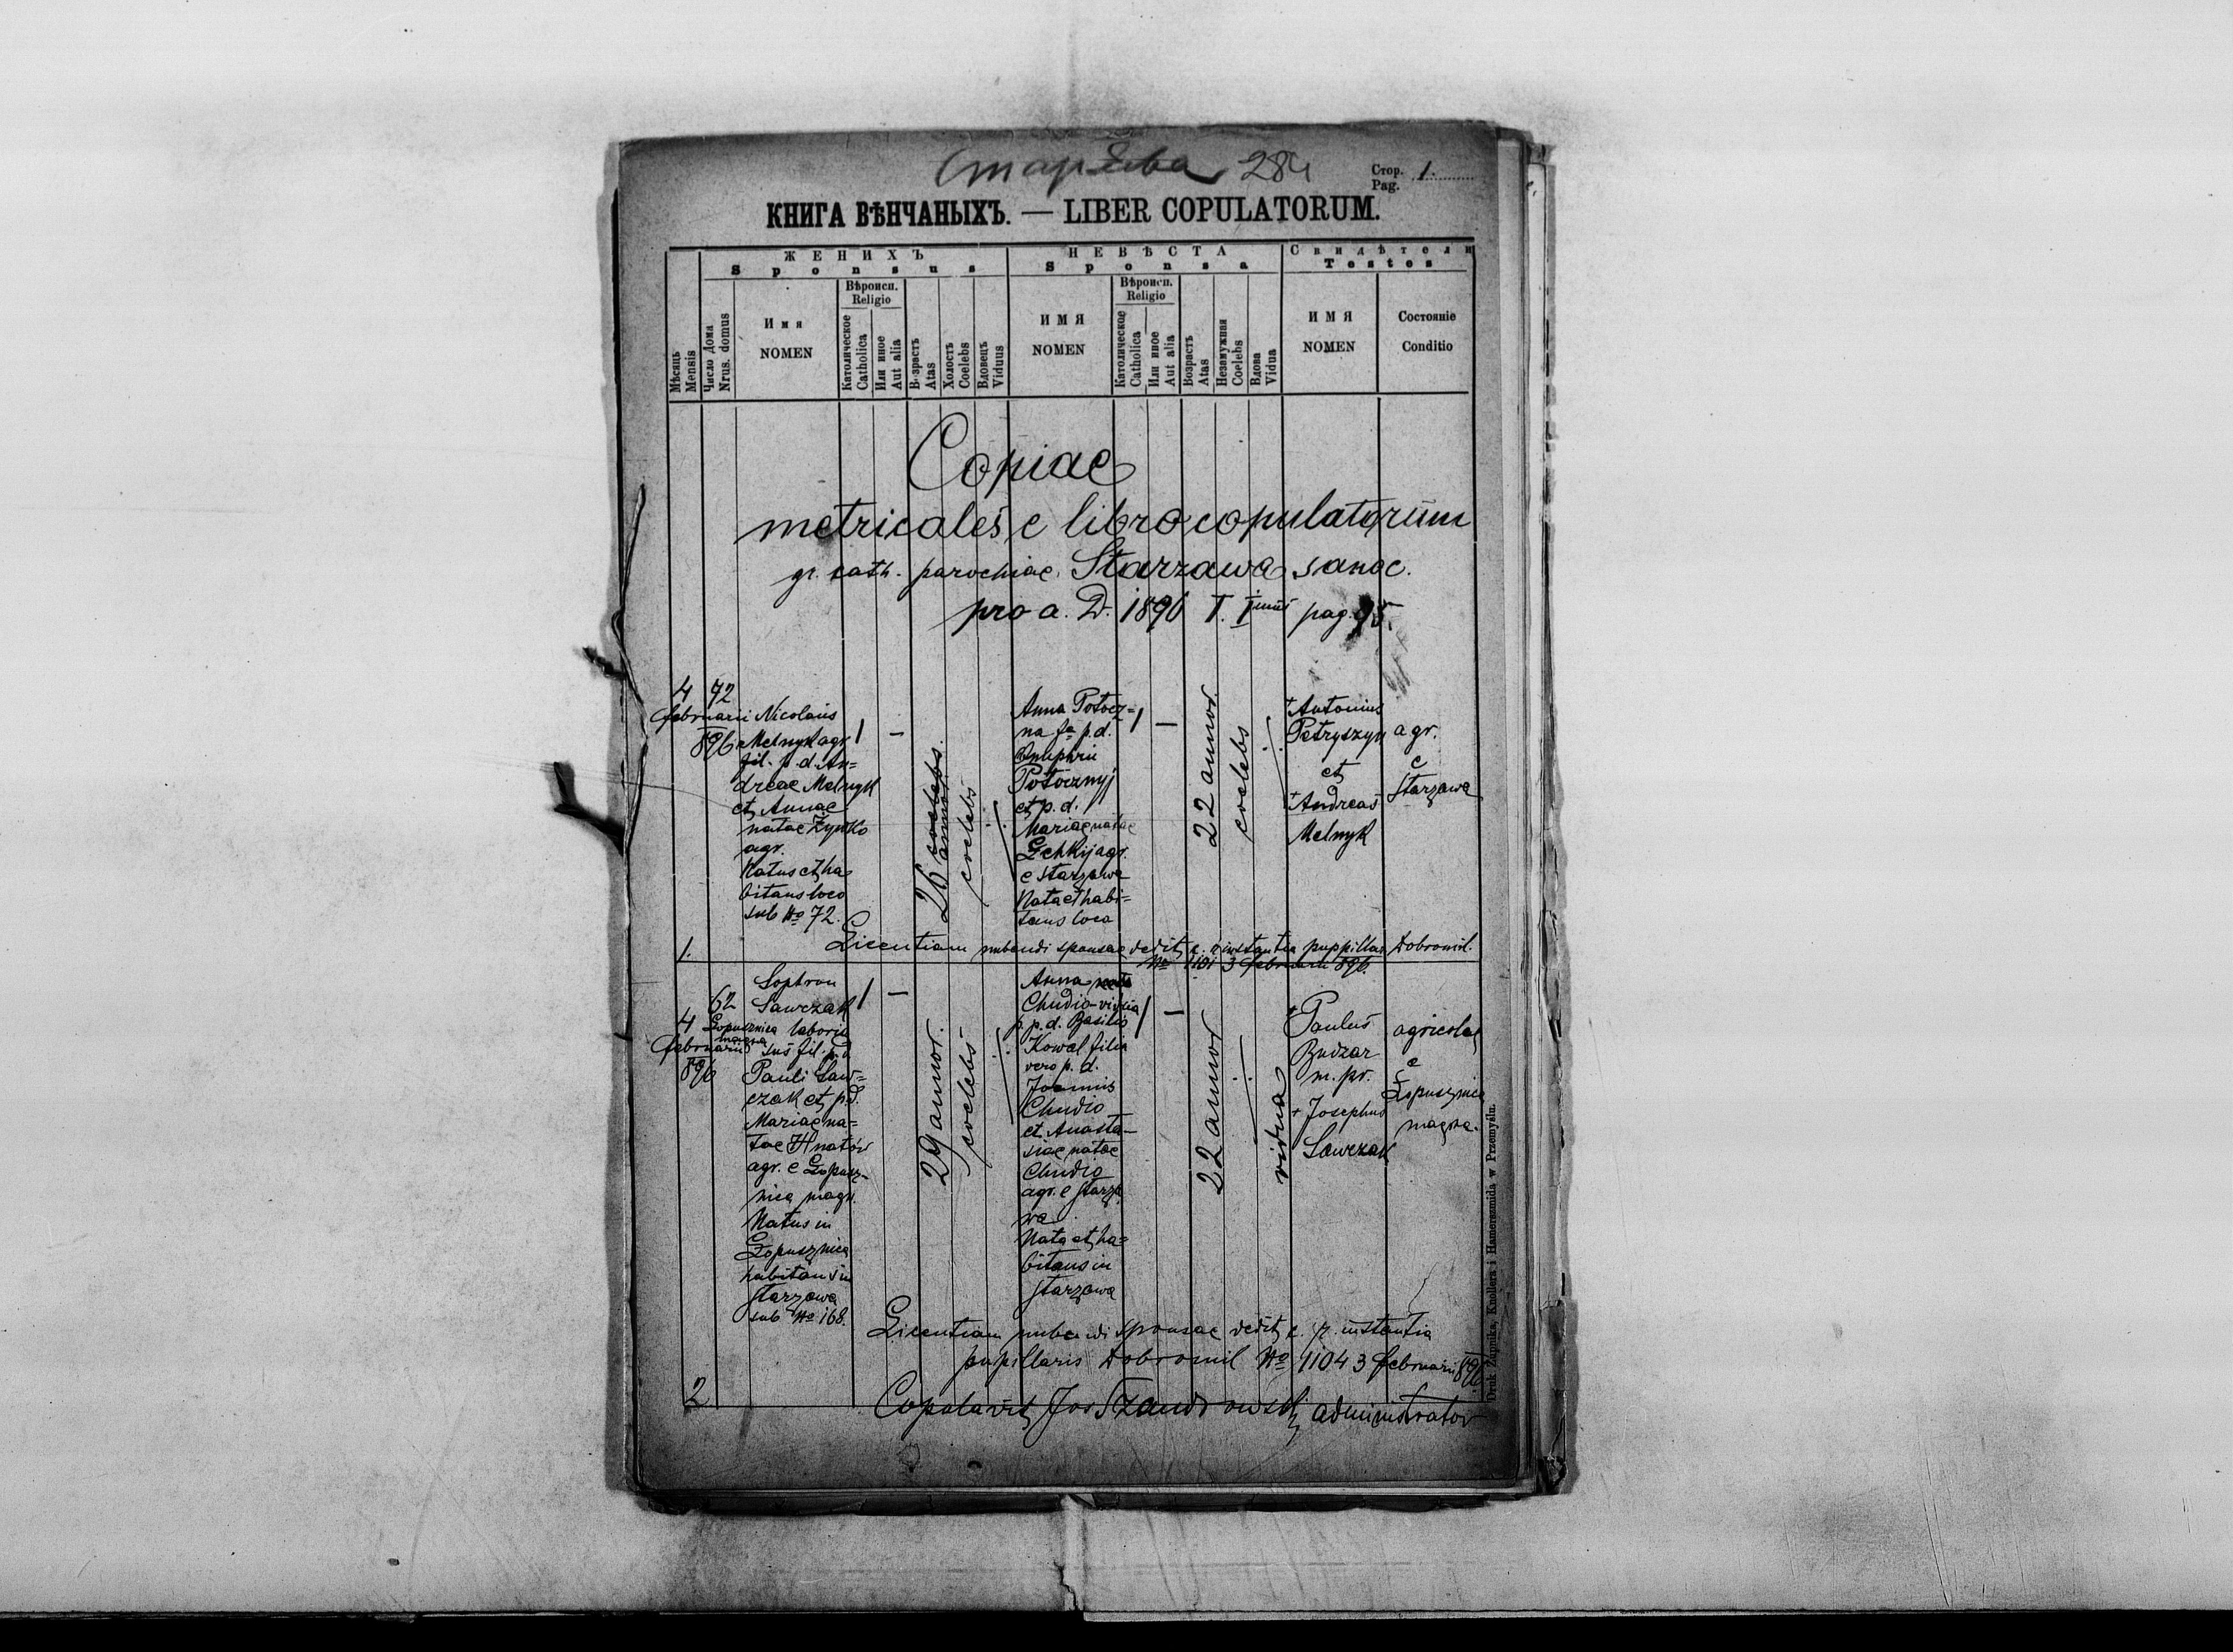 Старява 284
Стор. Pag. 1.
КНИГА ВѢНЧАНЫХЪ. — LIBER COPULATORUM.
Мѣсяць Mensis
Число Дома Nrus. domus
ЖЕНИХЪ
Sponsus
Имя
NOMEN
Вѣроисп.
Religio
Католическое Catholica
Или иное Aut alia
Возрасть Atas
Холостъ Coelebs
Вдовецъ Viduus
НЕВѢСТА
Sponsa
ИМЯ
NOMEN
Вѣроисп.
Religio
Католическое Catholica
Или иное Aut alia
Возрасть Atas
Незамужная Coelebs
Вдова Vidua
Свидѣтели
Testes
ИМЯ
NOMEN
Состояніе
Conditio
Copiae
metricales e libro copulatorum
gr. cath. parochiae Starzawa sanoc.
pro a. D. 1896 T. I pag. 95.
4
februarii
896
72
Nicolaus
Melnyk agr.
fil. p. d. An=
dreae Melnyk
et Annae
natae Zynko
agr.
Natus et ha
bitans loco
sub No 72.
/ —
26 annor.
coelebs
Anna Potocz=
na fa p. d.
Onuphrii
Potocznyj
et p. d.
Mariae natae
agr.
e Starzawa
Nata et habi=
tans loco
/ —
22 annor.
coelebs
+ Antonius
Petryszyn
et
+ Andreas
Melnyk
agr.
e
Starzawa
1.
Licentiam nubendi sponsae dedit c. r. instantia puppillar Dobromil.
No 1101 3 februarii 896.
4
februarii
896
62
Łopusznica
magna
Sophron
Sawczak
laborio
sus fil. p. d.
Pauli Saw=
czak et p. d.
Mariae na=
tae Hnatów
agr. e Łopusz=
nica magn.
Natus in
Łopusznica
habitans in
Starzawa
sub No 168.
/ —
29 annor.
coelebs
Anna nata
Chudio vidua
p. p. d. Basilio
Kowal filia
vero p. d.
Joannis
Chudio
et Anasta-
siae natae
Chudio
agr. e Starza
wa
Nata et ha=
bitans in
Starzawa
/ —
22 annor
vidua
+ Paulus
Budzar
m. pr.
+ Josephus
Sawczak
agricolae
e
Łopusznica
magna.
Licentiam nubendi sponsae dedit c. r. instantia
pupillaris Dobromil No 1104 3 februarii 896.
2
Copulavit Jos administrator
Druk Żupnika, Knollera i Hamerszmida w Przemyślu.